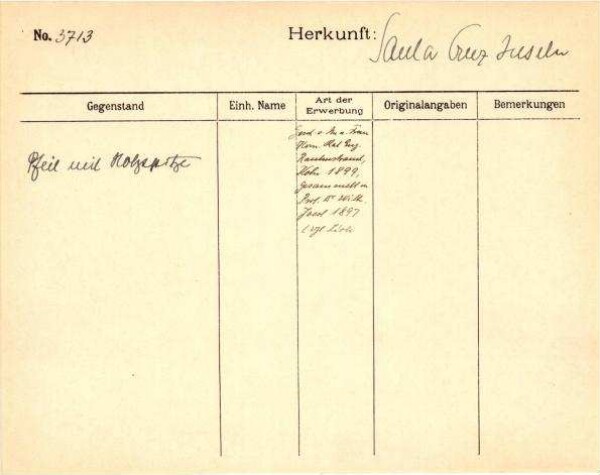 No. 3713
Herkunft: Santa Cruz Inseln
Gegenstand
Einh. Name
Art der Erwerbung
Originalangaben
Bemerkungen
Pfeil mit Holzspitze
Gesch. v. Hr. u. Frau
Kom. Rat Eug.
Rautenstrauch,
Köln 1899,
gesammelt v.
Prof. Dr Wilh.
Joest 1897